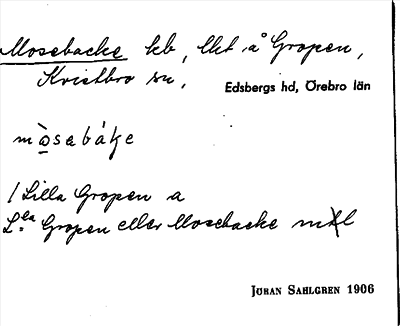 Mosebacke hb, lht å Gropen,
Kvistbro sn,
Edsbergs hd, Örebro län
mòsabáke
/ Lilla Gropen a
L:ea Gropen eller Mosebacke
JÖRAN SAHLGREN 1906